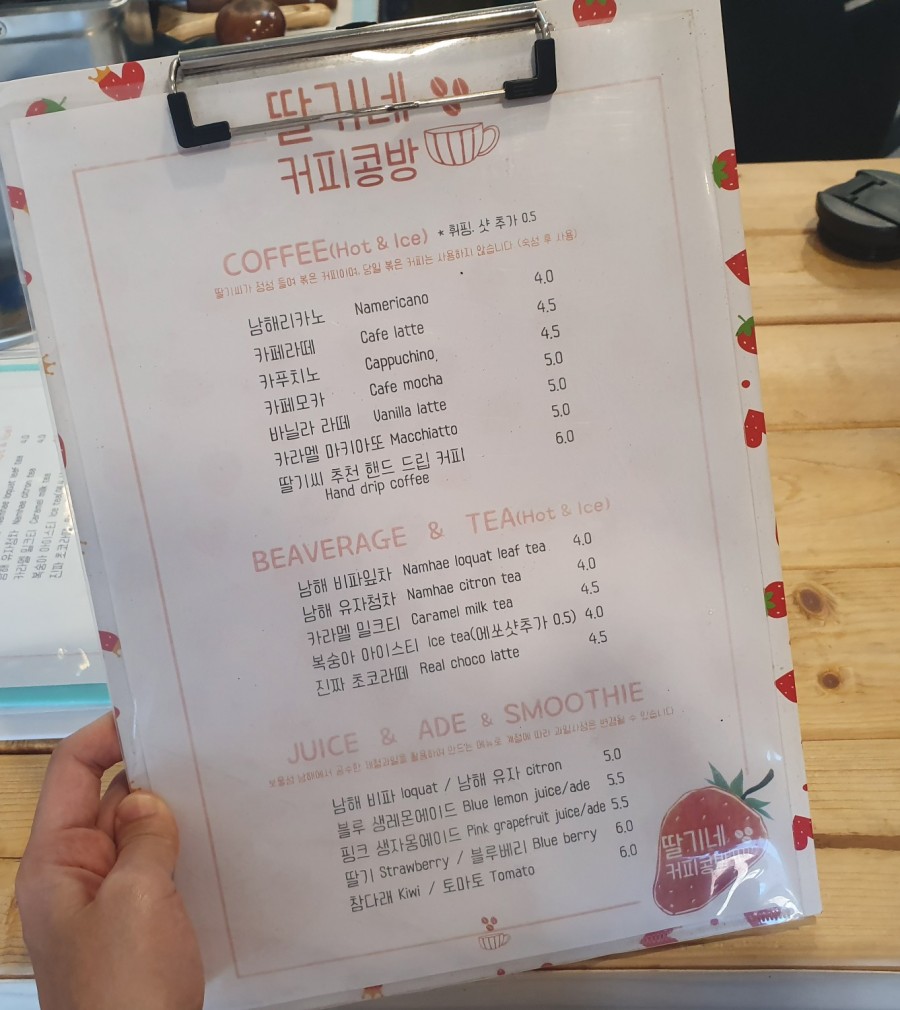 딸기네
커피콩방
COFFEE(Hot & Ice) * 휘핑, 샷 추가 0.5
딸기씨가 정성 들여 볶은 커피이며, 당일 볶은 커피는 사용하지 않습니다 (숙성 후 사용)
남해리카노 Namericano 4.0
카페라떼 Cafe latte 4.5
카푸치노 Cappuchino, 4.5
카페모카 Cafe mocha 5.0
바닐라 라떼 Vanilla latte 5.0
카라멜 마키아또 Macchiatto 5.0
딸기씨 추천 핸드 드립 커피 6.0
Hand drip coffee
BEAVERAGE & TEA(Hot & Ice)
남해 비파잎차 Namhae loquat leaf tea 4.0
남해 유자청차 Namhae citron tea 4.0
카라멜 밀크티 Caramel milk tea 4.5
복숭아 아이스티 Ice tea(에쏘샷추가 0.5) 4.0
진파 초코라떼 Real choco latte 4.5
JUICE & ADE & SMOOTHIE
보물섬 남해에서 공수한 제철과일을 활용하여 만드는 메뉴로 계절에 따라 과일사정은 변경될 수 있습니다
남해 비파 loquat / 남해 유자 citron 5.0
블루 생레몬에이드 Blue lemon juice/ade 5.5
핑크 생자몽에이드 Pink grapefruit juice/ade 5.5
딸기 Strawberry / 블루베리 Blue berry 6.0
참다래 Kiwi / 토마토 Tomato 6.0
딸기네
커피콩방
Namhae loquat leaf tea 4.0
남해 유자청차 Namhae citron tea 4.0
카라멜 밀크티 Caramel milk tea
복숭아 아이스티 Ice tea
진파 초코라떼